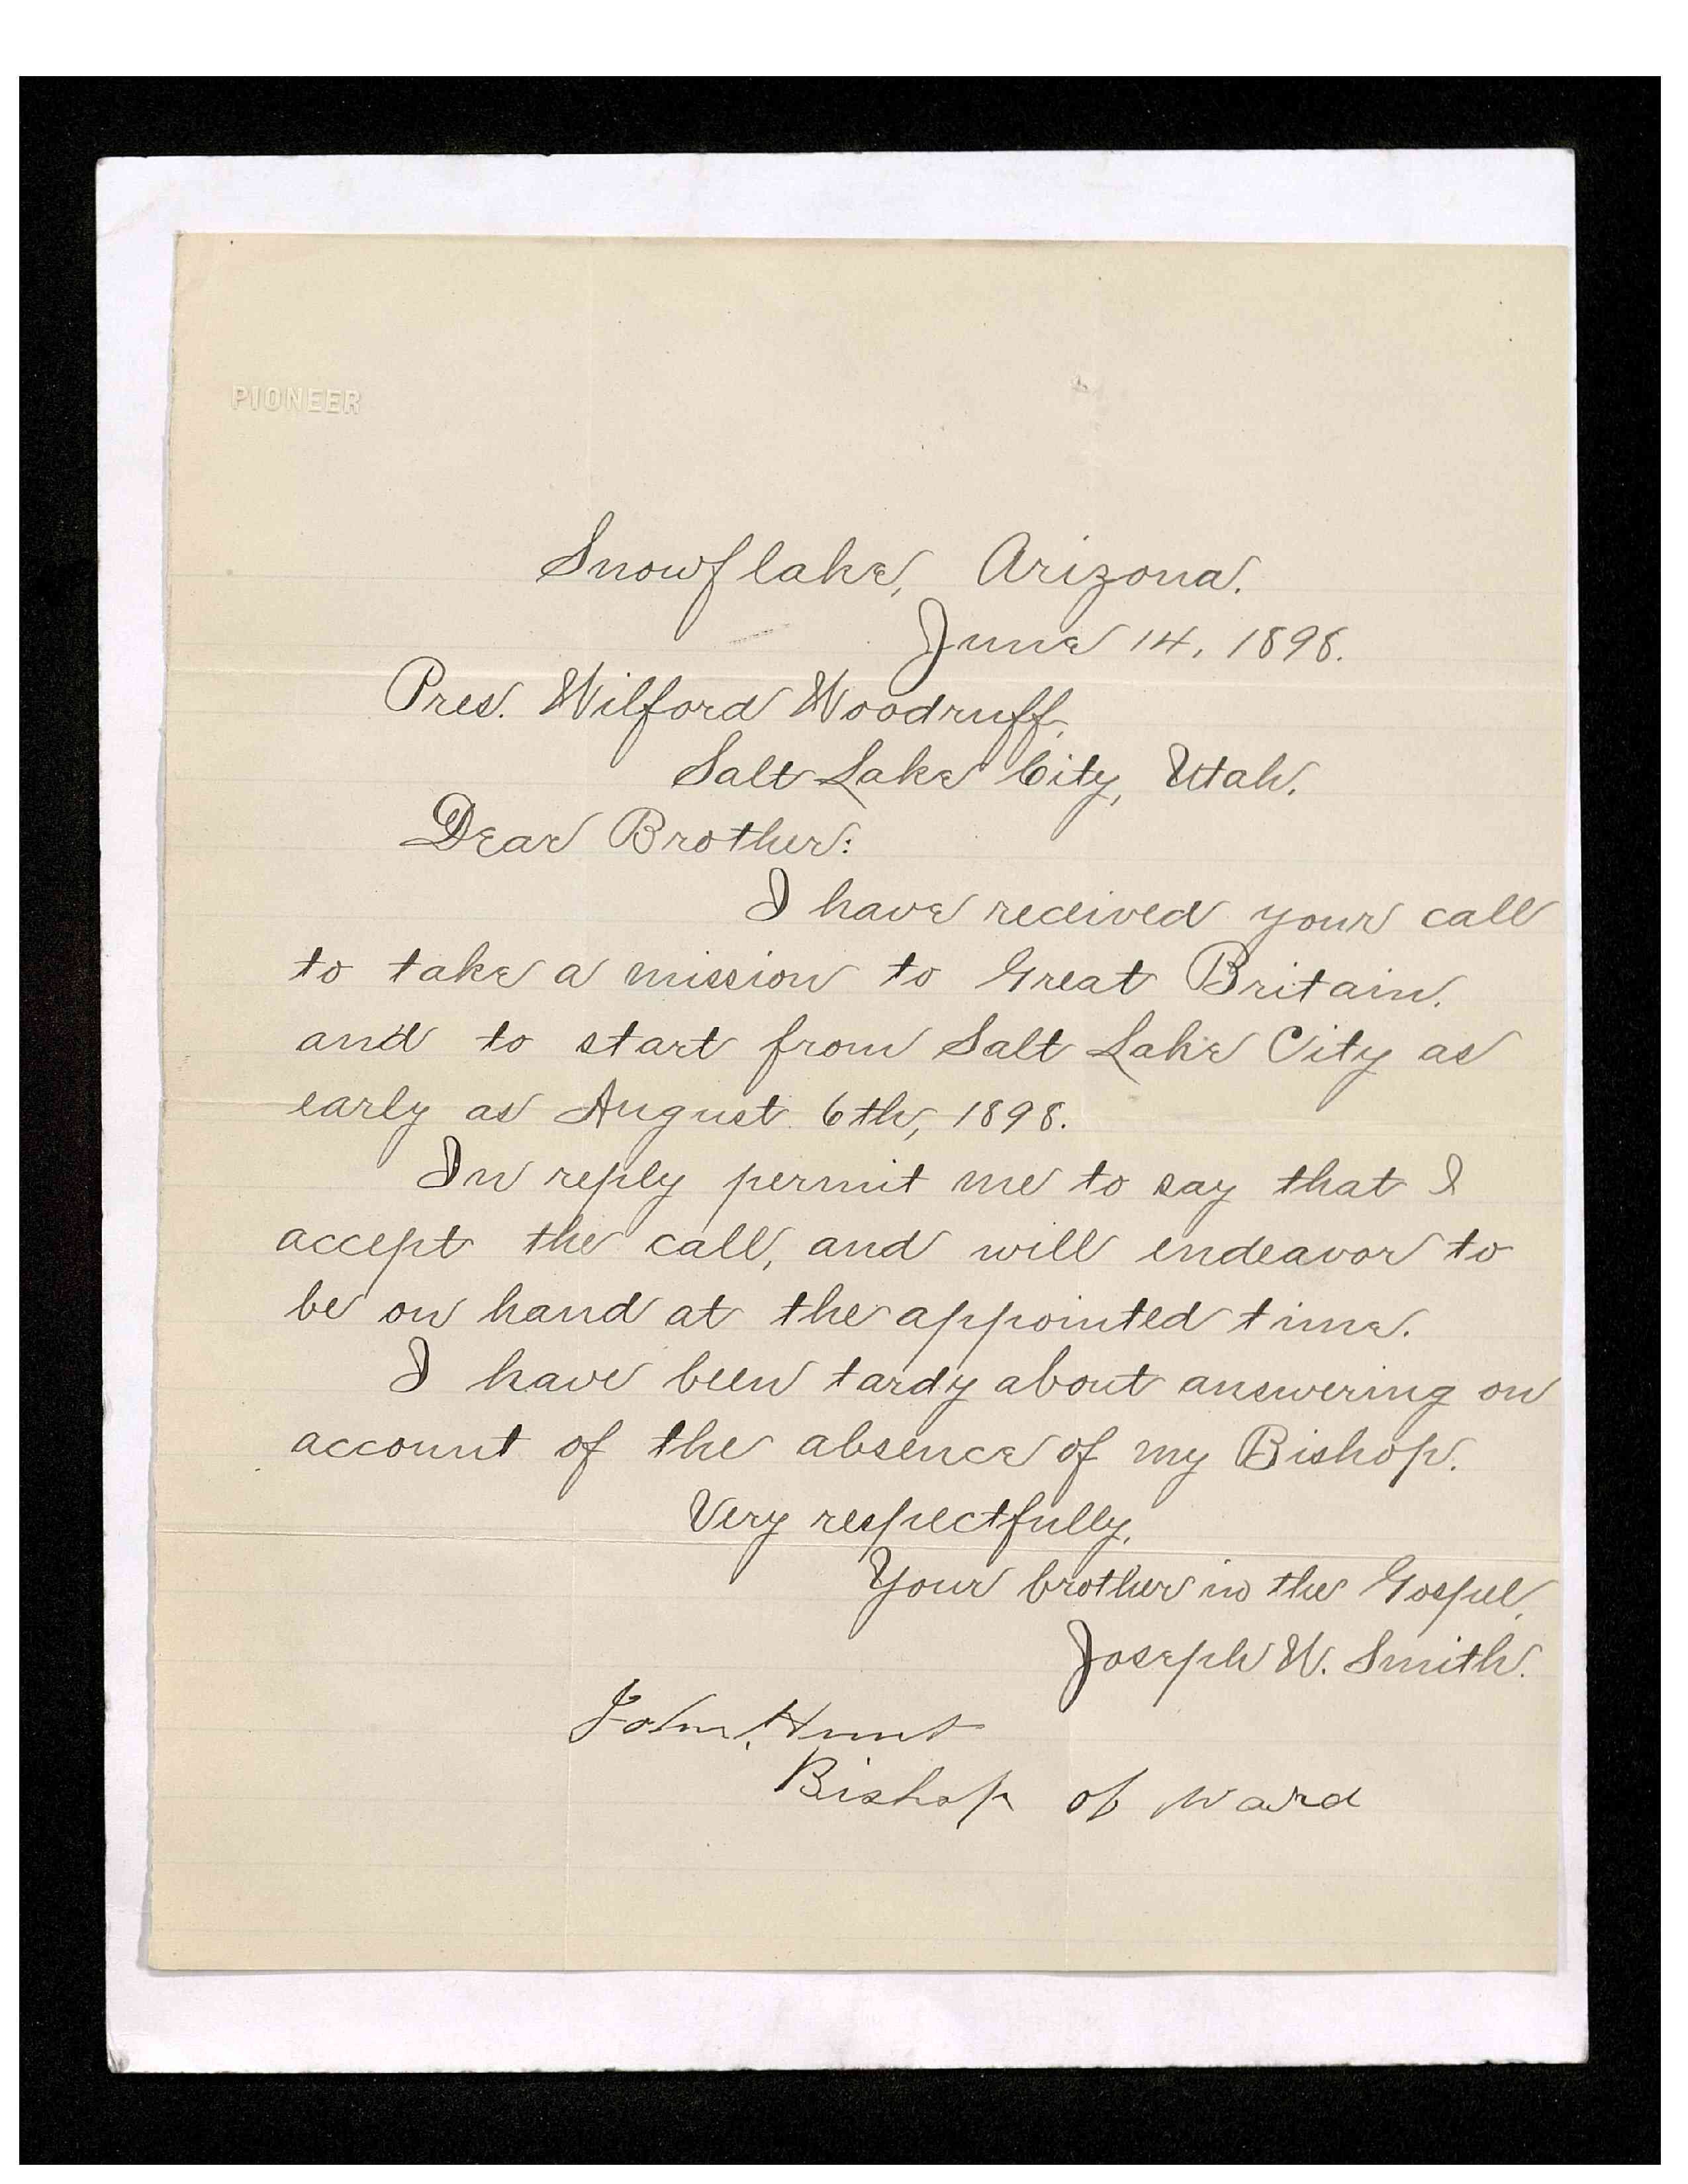 PIONEER
Snowflake, Arizona.
June 14, 1898.
Pres. Wilford Woodruff,
Salt Lake City, Utah.
Dear Brother:
I have received your call
to take a mission to Great Britain.
and to start from Salt Lake City as
early as August 6th, 1898.
In reply permit me to say that I
accept the call, and will endeavor to
be on hand at the appointed time.
I have been tardy about answering on
account of the absence of my Bishop.
Very respectfully,
Your brother in the Gospel,
Joseph W. Smith.
John, Hunt
Bishop of Ward